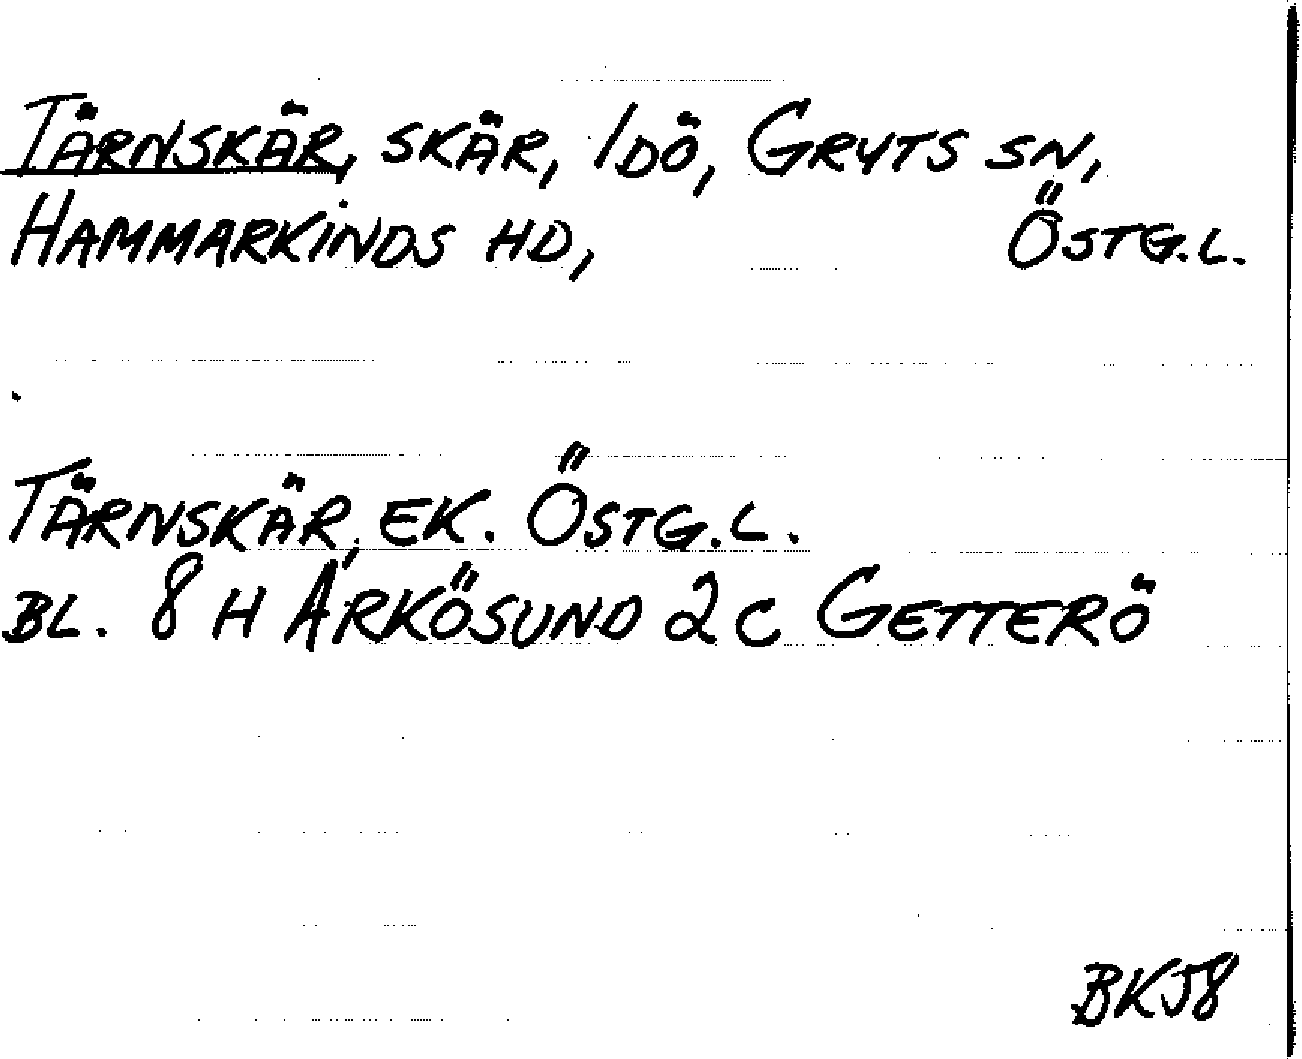 TÄRNSKÄR, SKÄR, IDÖ, GRYTS SN,
HAMMARKINDS HD, ÖSTG.L.
TÄRNSKÄR, EK. ÖSTG.L.
BL. 8 H ARKÖSUND 2 C GETTERÖ
BKJ8